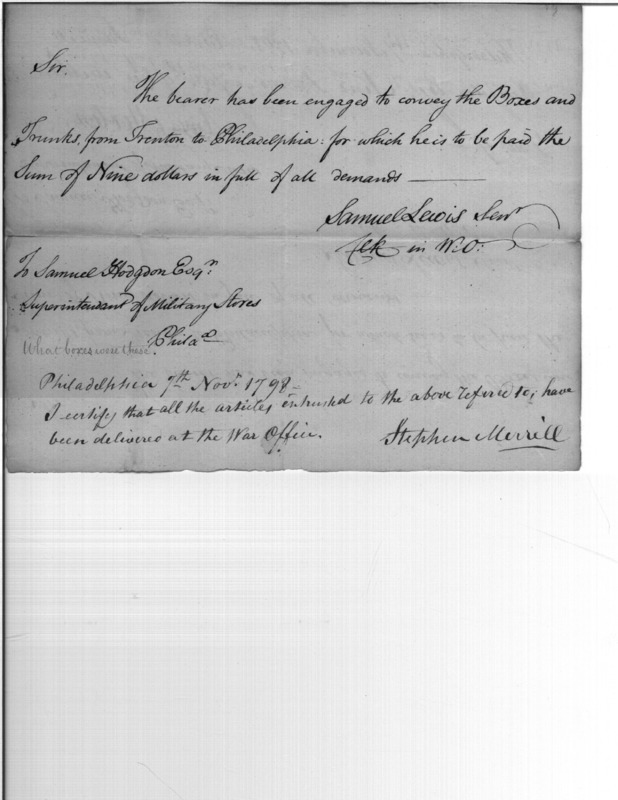 Sir.
The bearer has been engaged to convey the Boxes and
Trunks, from Trenton to Philadelphia: for which he is to be paid the
Sum of Nine dollars in full of all demands
Samuel Lewis Senr
Clk in W.O.
To Samuel Hodgdon Esqr.
Superintendant of Military Stores
Philaa.
What boxes were these
Philadelphia 7th Novr. 1798 -
I certify that all the articles intrusted to the above refered to, have
been delivered at the War Office.
Stephen Merrill